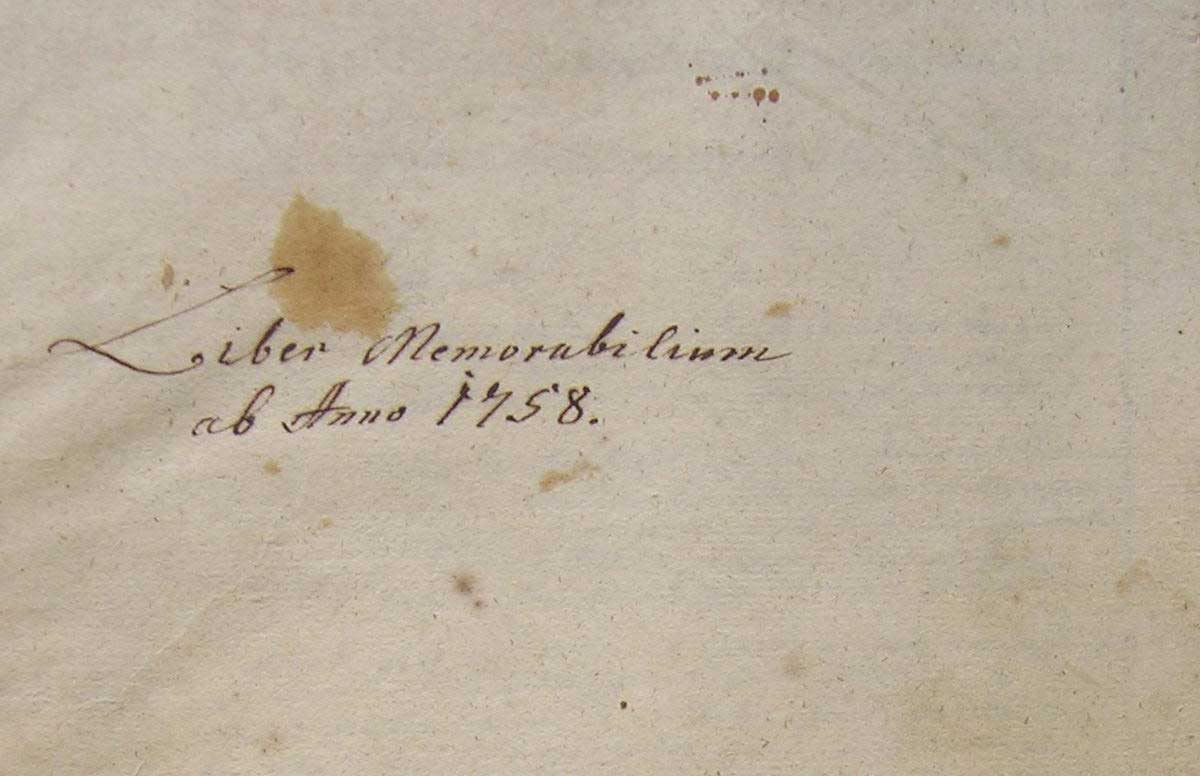 Liber Memorabilium
ab Anno 1758.